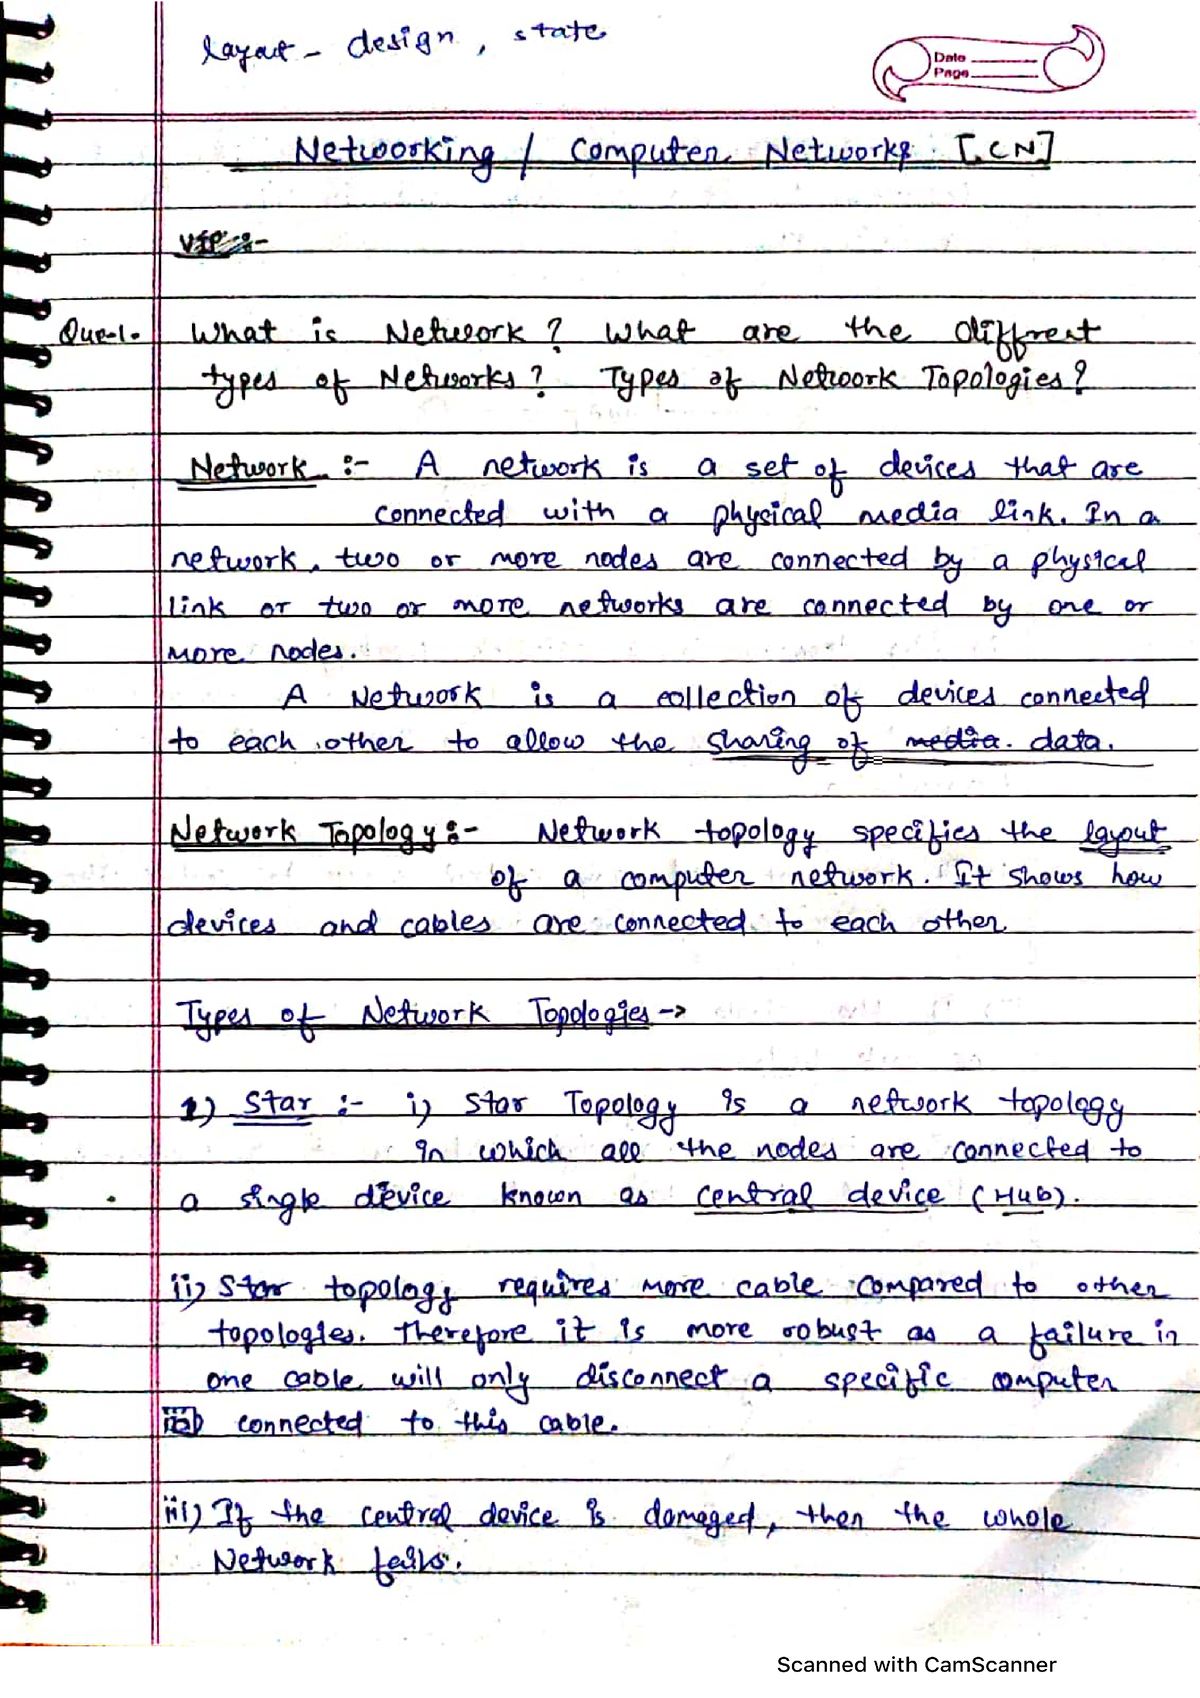 layout - design, state
Date
Page
Networking / Computer Networks [CN]
VIP :-
Que-1. What is Network? What are the diffrent
types of Networks? Types of Network Topologies?
Network :- A network is a set of devices that are
connected with a physical media link. In a
network, two or more nodes are connected by a physical
link or two or more networks are connected by one or
more nodes.
A Network is a collection of devices connected
to each other to allow the sharing of media. data.
Network Topology :- Network topology specifies the layout
of a computer network. It shows how
devices and cables are connected to each other
Types of Network Topologies ->
1) Star :- i) Star Topology is a network topology
in which all the nodes are connected to
a single device known as central device (Hub).
ii) Star topology requires more cable compared to other
topologies. Therefore it is more robust as a failure in
one cable will only disconnect a specific computer
connected to this cable.
iii) If the central device is damaged, then the whole
Network fails.
Scanned with CamScanner